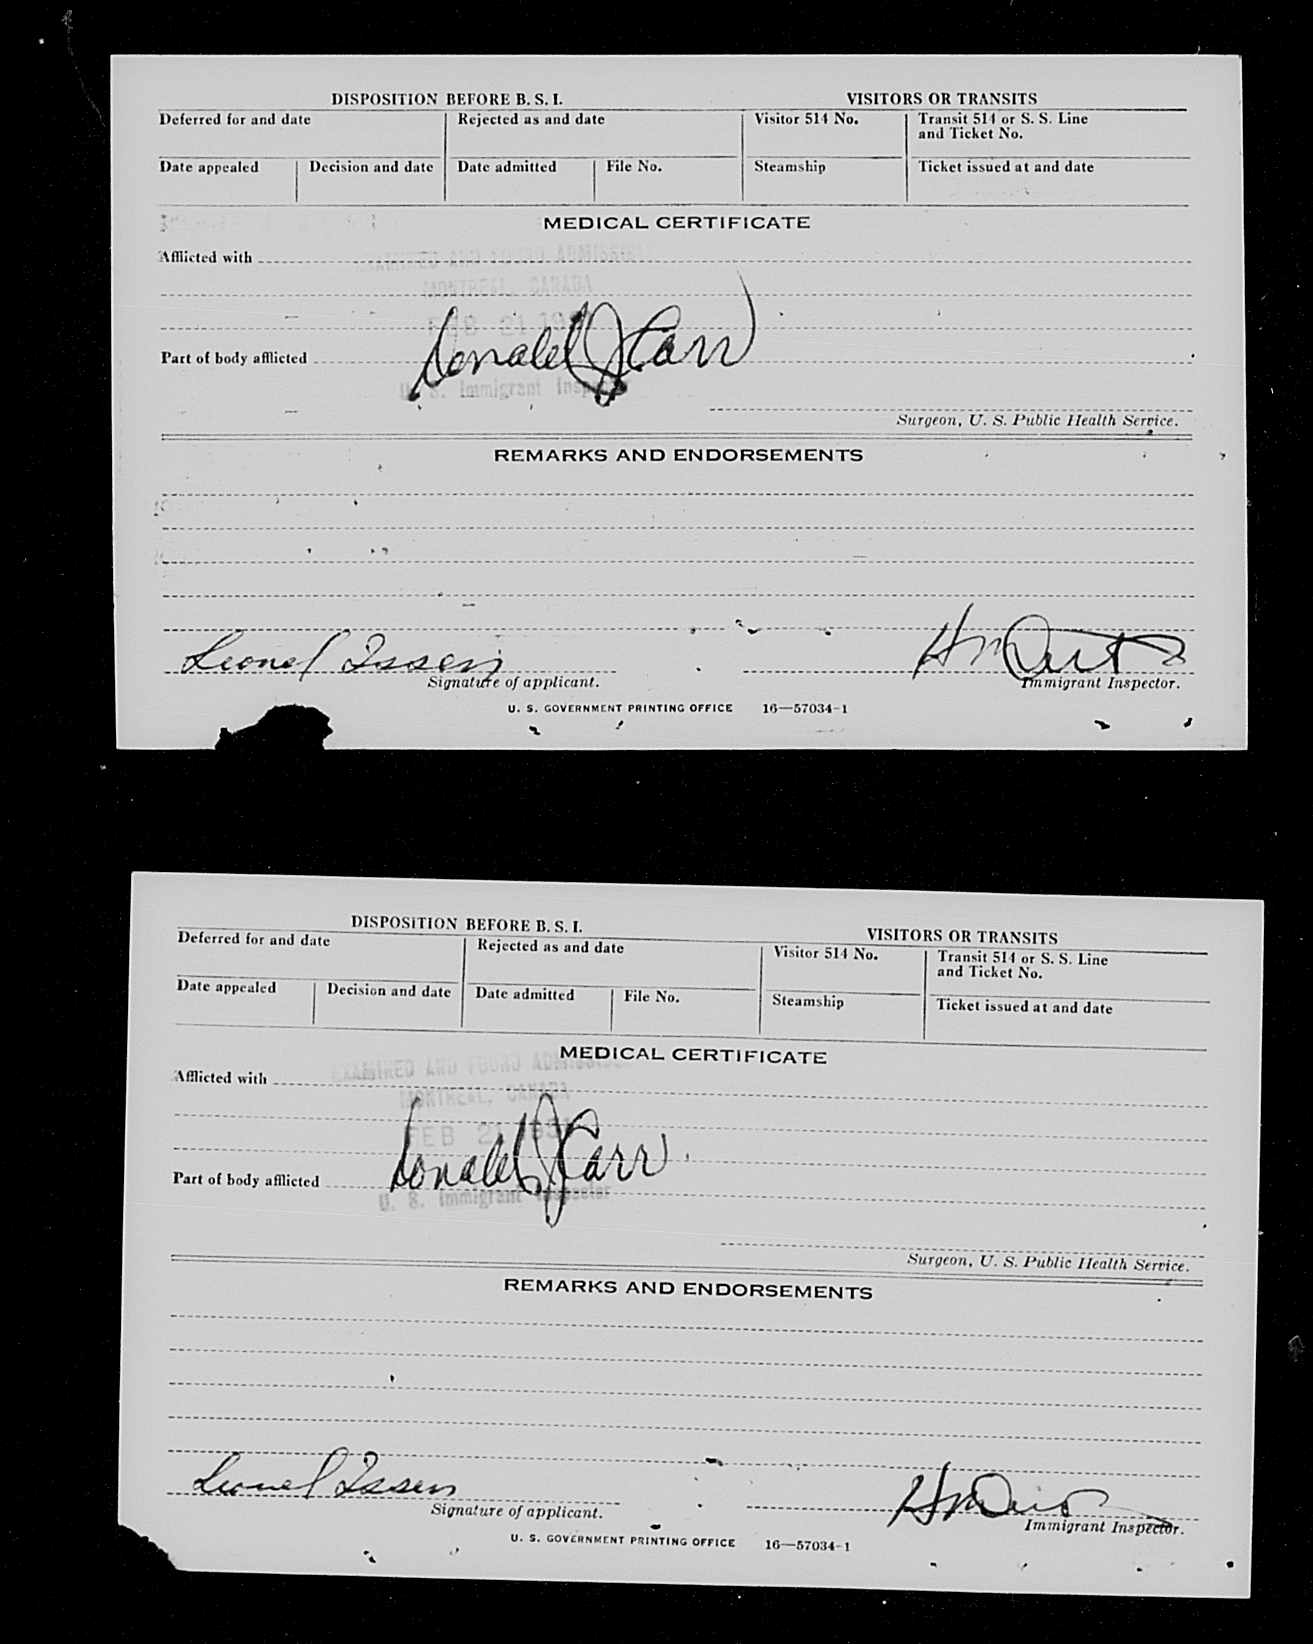 DISPOSITION BEFORE B. S. I.
VISITORS OR TRANSITS
Deferred for and date
Rejected as and date
Visitor 514 No.
Transit 514 or S. S. Line
and Ticket No.
Date appealed
Decision and date
Date admitted
File No.
Steamship
Ticket issued at and date
MEDICAL CERTIFICATE
EXAMINED AND FOUND ADMISSIBLE
Afflicted with
MONTREAL, CANADA
FEB 21
Donald J Carr
Part of body afflicted
U. S. Immigrant Inspector
Surgeon, U. S. Public Health Service.
REMARKS AND ENDORSEMENTS
Lionel Issen
Signature of applicant.
Immigrant Inspector.
U. S. GOVERNMENT PRINTING OFFICE 16—57034-1
DISPOSITION BEFORE B. S. I.
VISITORS OR TRANSITS
Deferred for and date
Rejected as and date
Visitor 514 No.
Transit 514 or S. S. Line
and Ticket No.
Date appealed
Decision and date
Date admitted
File No.
Steamship
Ticket issued at and date
MEDICAL CERTIFICATE
EXAMINED AND FOUND ADMISSIBLE
Afflicted with
MONTREAL, CANADA
FEB 21
Donald J Carr
Part of body afflicted
U. S. Immigrant Inspector
Surgeon, U. S. Public Health Service.
REMARKS AND ENDORSEMENTS
Lionel Issen
Signature of applicant.
Immigrant Inspector.
U. S. GOVERNMENT PRINTING OFFICE 16—57034-1